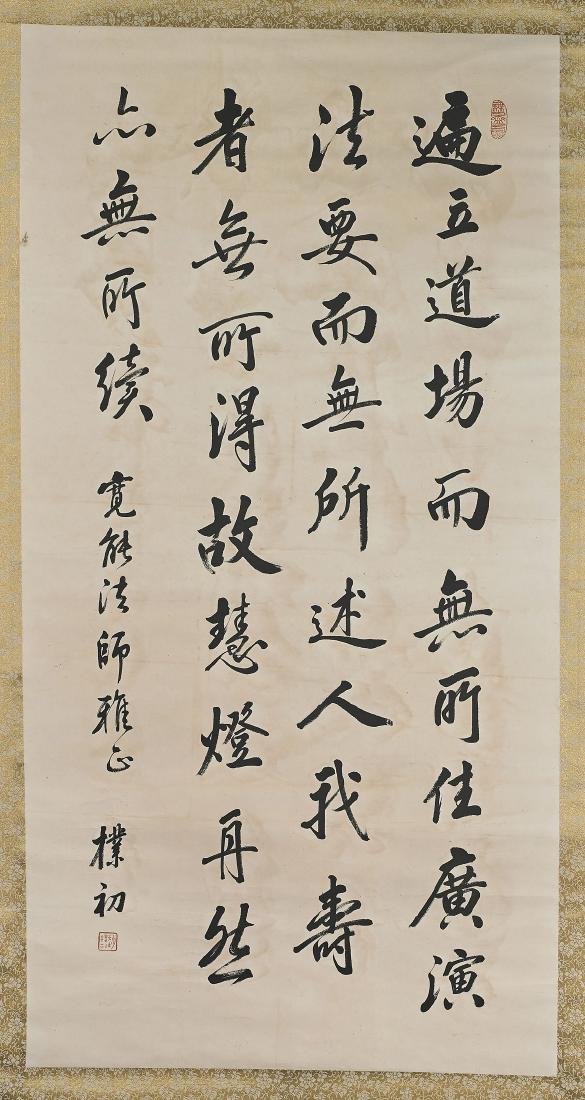 遍立道場而無所住廣演
法要而無所述人我壽
者無所得故慧燈再然
亦無所續 寬能法師雅正 樸初